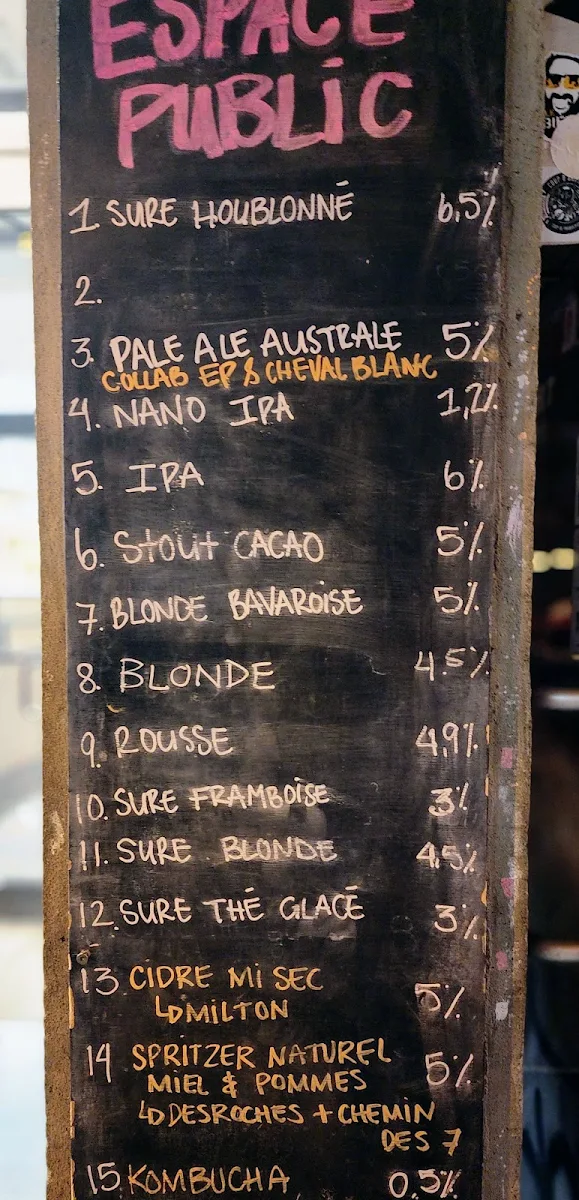 ESPACE
PUBLIC
1 SURE HOUBLONNÉ 6,5%
2.
3. PALE ALE AUSTRALE 5%
COLLAB EP & CHEVAL BLANC
4. NANO IPA 1,2%
5. IPA 6%
6. Stout CACAO 5%
7. BLONDE BAVAROISE 5%
8. BLONDE 4.5%
9. ROUSSE 4,9%
10. SURE FRAMBOISE 3%
11. SURE BLONDE 4,5%
12. SURE THÉ GLACÉ 3%
13 CIDRE Mi SEC 5%
↳ MILTON
14 SPRITZER NATUREL 5%
MIEL & POMMES
↳ DESROCHES + CHEMIN
DES 7
15 KOMBUCHA 0,5%